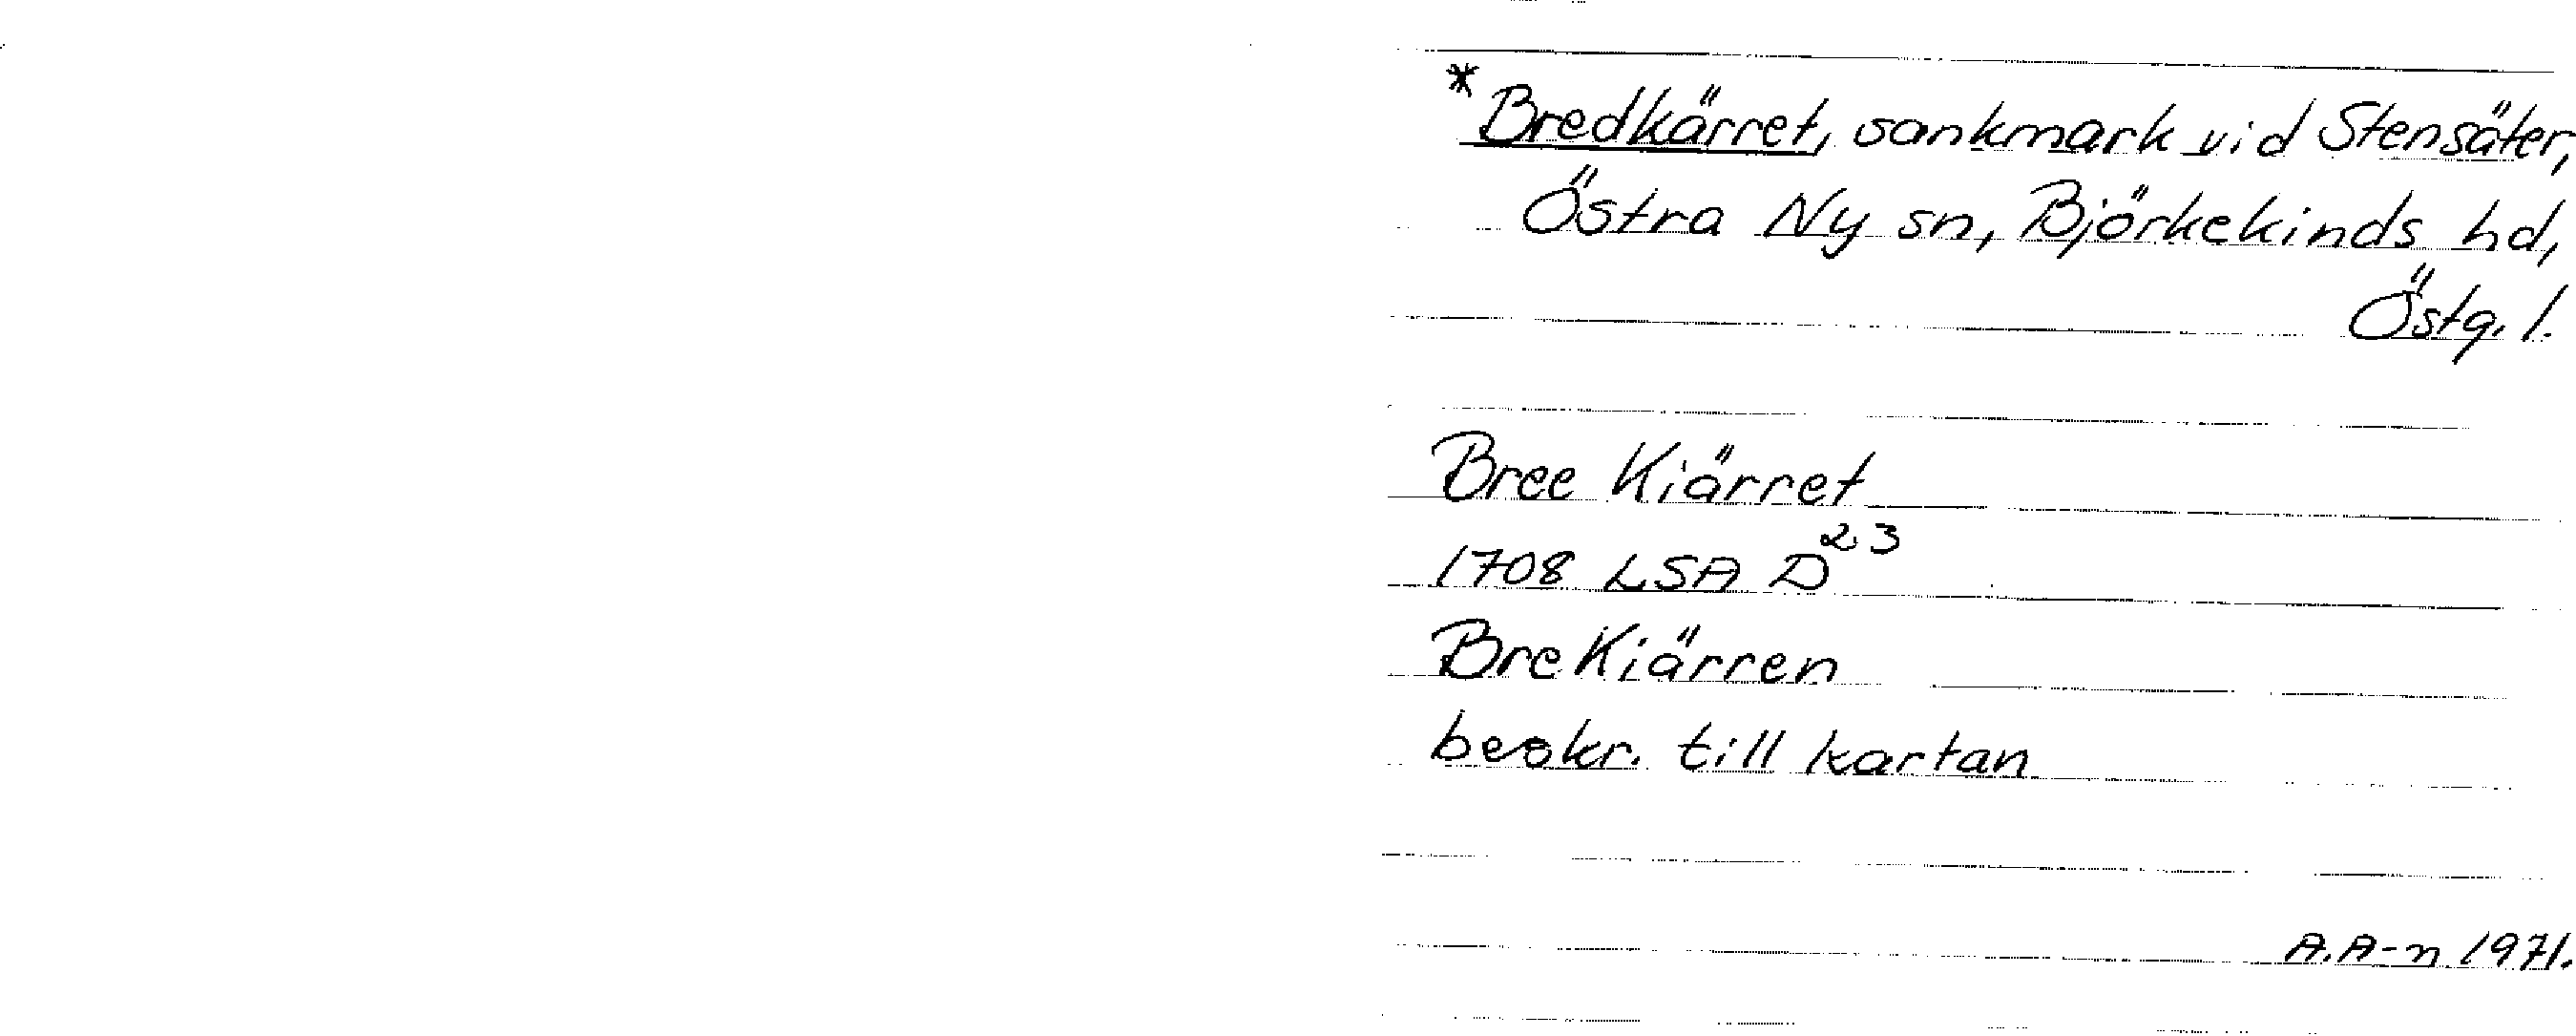 * Bredkärret, sankmark vid Stensäter,
Östra Ny sn, Björkekinds hd,
Östg. l.
Bree Kiärret
1708 LSA D²³
BreKiärren
beskr. till kartan
A.A-n 1971.